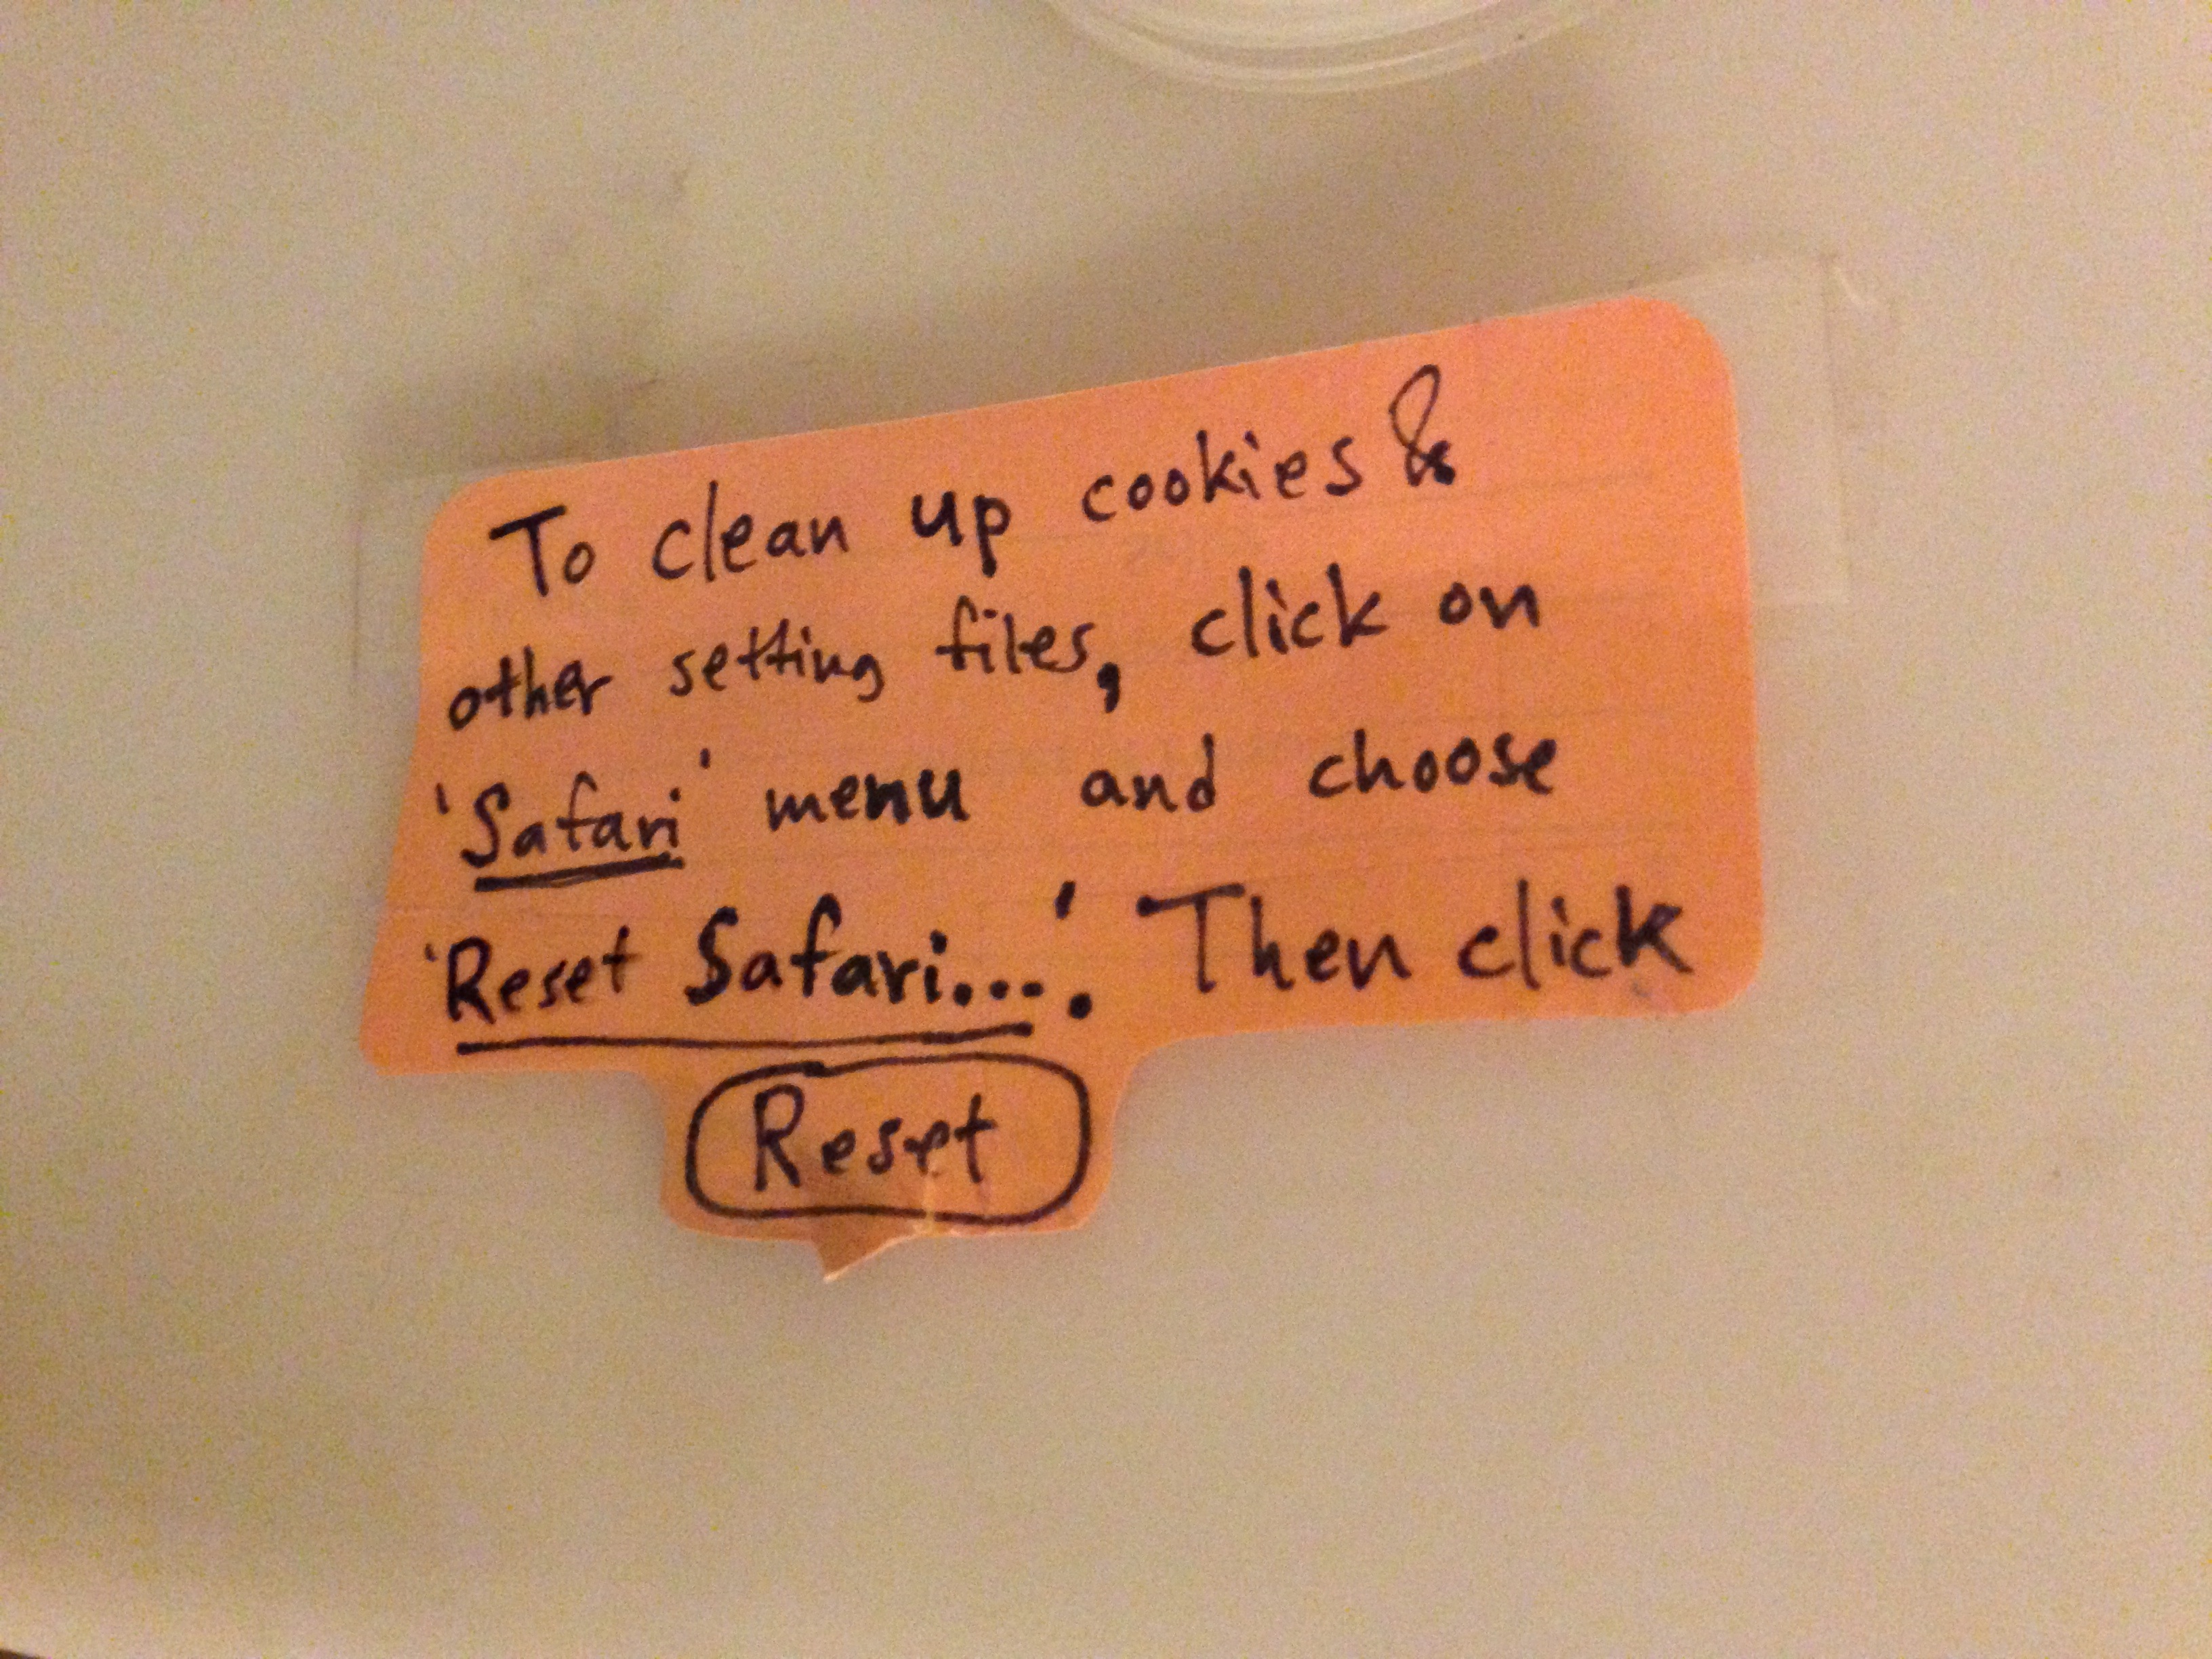 To clean up cookies &
other setting files, click on
'Safari' menu and choose
'Reset Safari...'. Then click
Reset